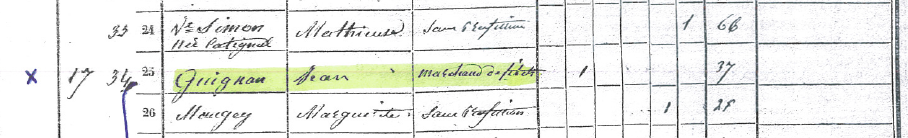 33 24 Ve Simon Mathieuse Sans Profession 1 66
née
x 17 34 25 Guignan Jean Marchand de 1 37
26 Mougey Marguerite Sans Profession 1 28